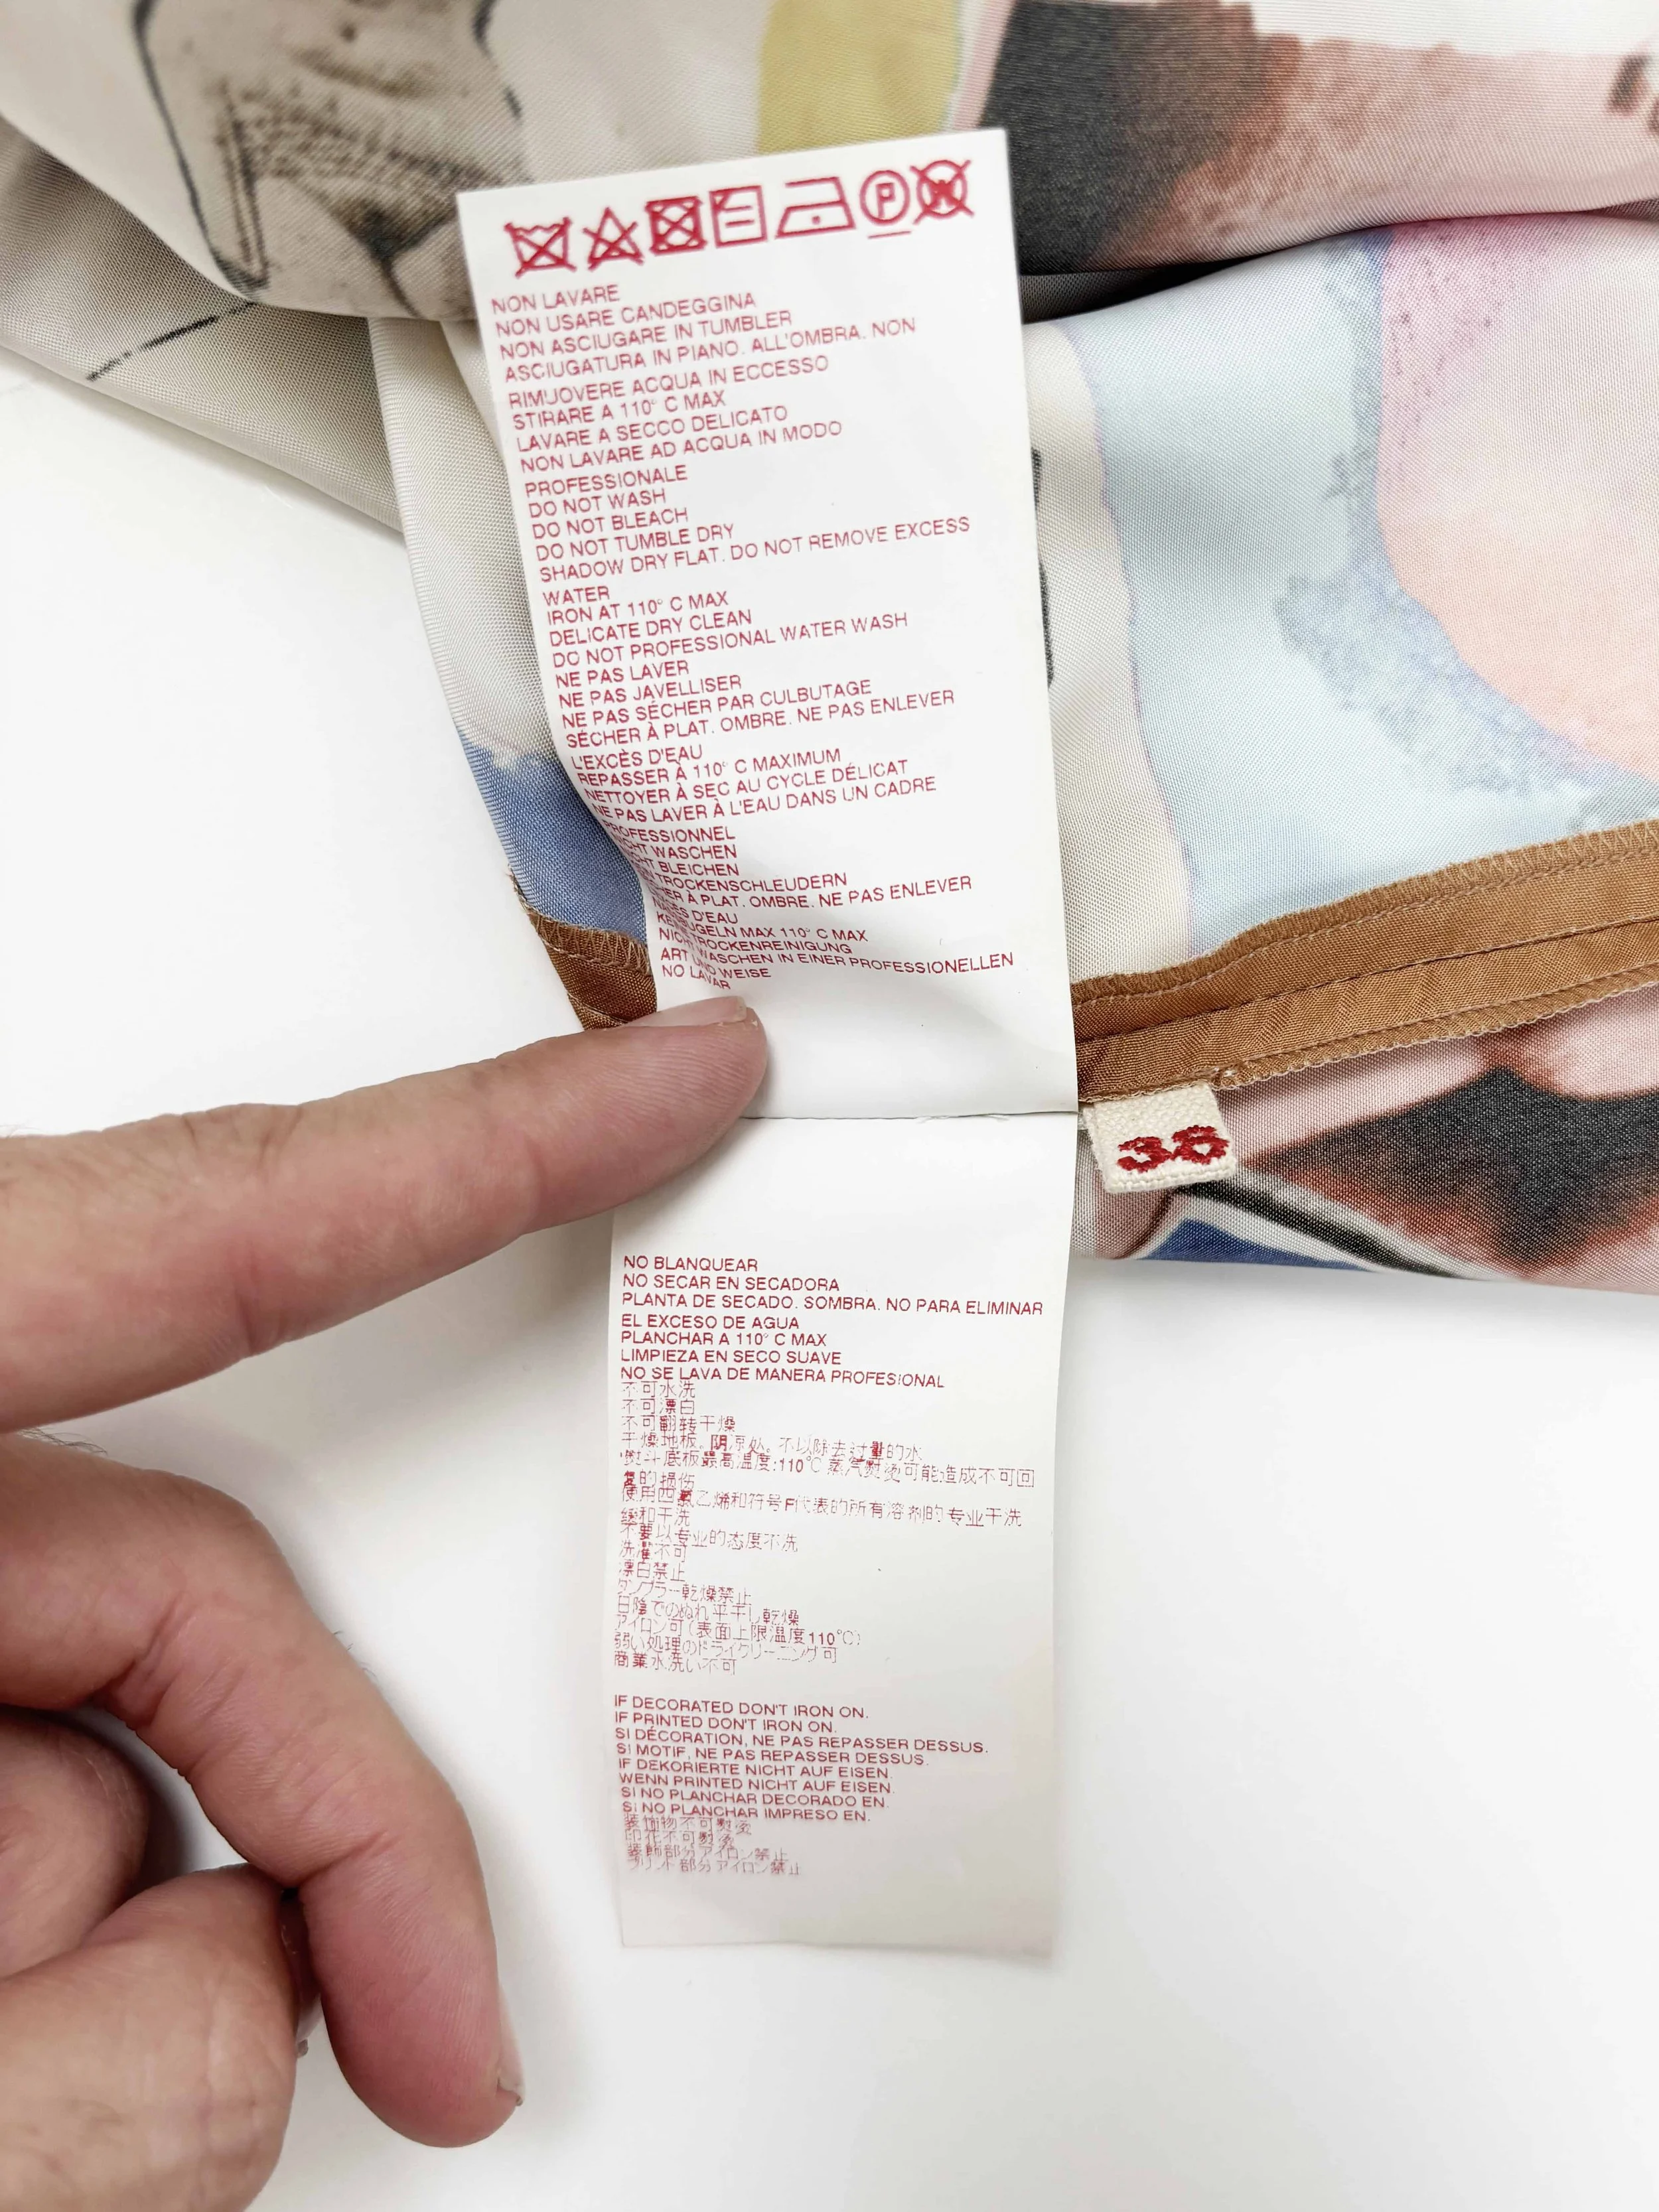 P
W
NON LAVARE
NON USARE CANDEGGINA
NON ASCIUGARE IN TUMBLER
ASCIUGATURA IN PIANO. ALL'OMBRA. NON
RIMUOVERE ACQUA IN ECCESSO
STIRARE A 110° C MAX
LAVARE A SECCO DELICATO
NON LAVARE AD ACQUA IN MODO
PROFESSIONALE
DO NOT WASH
DO NOT BLEACH
DO NOT TUMBLE DRY
SHADOW DRY FLAT. DO NOT REMOVE EXCESS
WATER
IRON AT 110° C MAX
DELICATE DRY CLEAN
DO NOT PROFESSIONAL WATER WASH
NE PAS LAVER
NE PAS JAVELLISER
NE PAS SÉCHER PAR CULBUTAGE
SÉCHER À PLAT. OMBRE. NE PAS ENLEVER
L'EXCÈS D'EAU
REPASSER À 110° C MAXIMUM
NETTOYER À SEC AU CYCLE DÉLICAT
NE PAS LAVER À L'EAU DANS UN CADRE
PROFESSIONNEL
WASCHEN
BLEICHEN
TROCKENSCHLEUDERN
À PLAT. OMBRE. NE PAS ENLEVER
D'EAU
MAX 110° C MAX
TROCKENREINIGUNG
ART UND WASCHEN IN EINER PROFESSIONELLEN
WEISE
NO LAVAR
38
NO BLANQUEAR
NO SECAR EN SECADORA
PLANTA DE SECADO. SOMBRA. NO PARA ELIMINAR
EL EXCESO DE AGUA
PLANCHAR A 110° C MAX
LIMPIEZA EN SECO SUAVE
NO SE LAVA DE MANERA PROFESIONAL
不可水洗
不可漂白
不可翻转干燥
干燥地板。阴凉处。不以除去过量的水
熨斗底板最高温度:110°C 蒸汽熨烫可能造成不可回
复的损伤
使用四氯乙烯和符号F代表的所有溶剂的专业干洗
缓和干洗
不要以专业的态度不洗
洗濯不可
漂白禁止
タンブラー乾燥禁止
日陰でのぬれ平干し乾燥
アイロン可(表面上限温度110°C)
弱い処理のドライクリーニング可
商業水洗い不可
IF DECORATED DON'T IRON ON.
IF PRINTED DON'T IRON ON.
SI DÉCORATION, NE PAS REPASSER DESSUS.
SI MOTIF, NE PAS REPASSER DESSUS.
IF DEKORIERTE NICHT AUF EISEN.
WENN PRINTED NICHT AUF EISEN.
SI NO PLANCHAR DECORADO EN.
SI NO PLANCHAR IMPRESO EN.
装饰物不可熨烫
印花不可熨烫
装飾部分アイロン禁止
プリント部分アイロン禁止